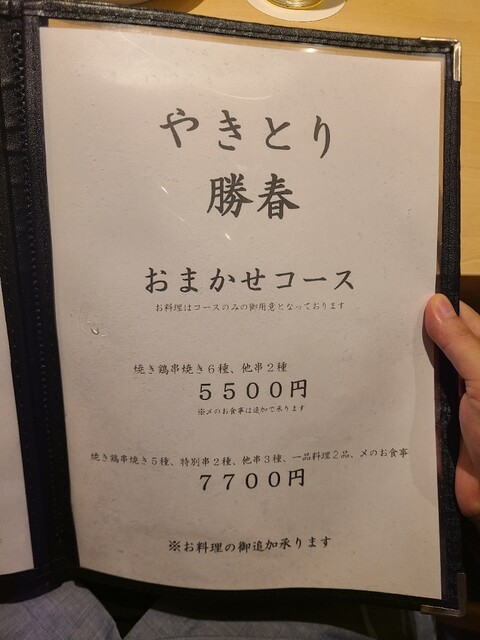 やきとり
勝春
おまかせコース
お料理はコースのみの御用意となっております
焼き鶏串焼き６種、他串２種
５５００円
※〆のお食事は追加で承ります
焼き鶏串焼き５種、特別串２種、他串３種、一品料理２品、〆のお食事
７７００円
※お料理の御追加承ります